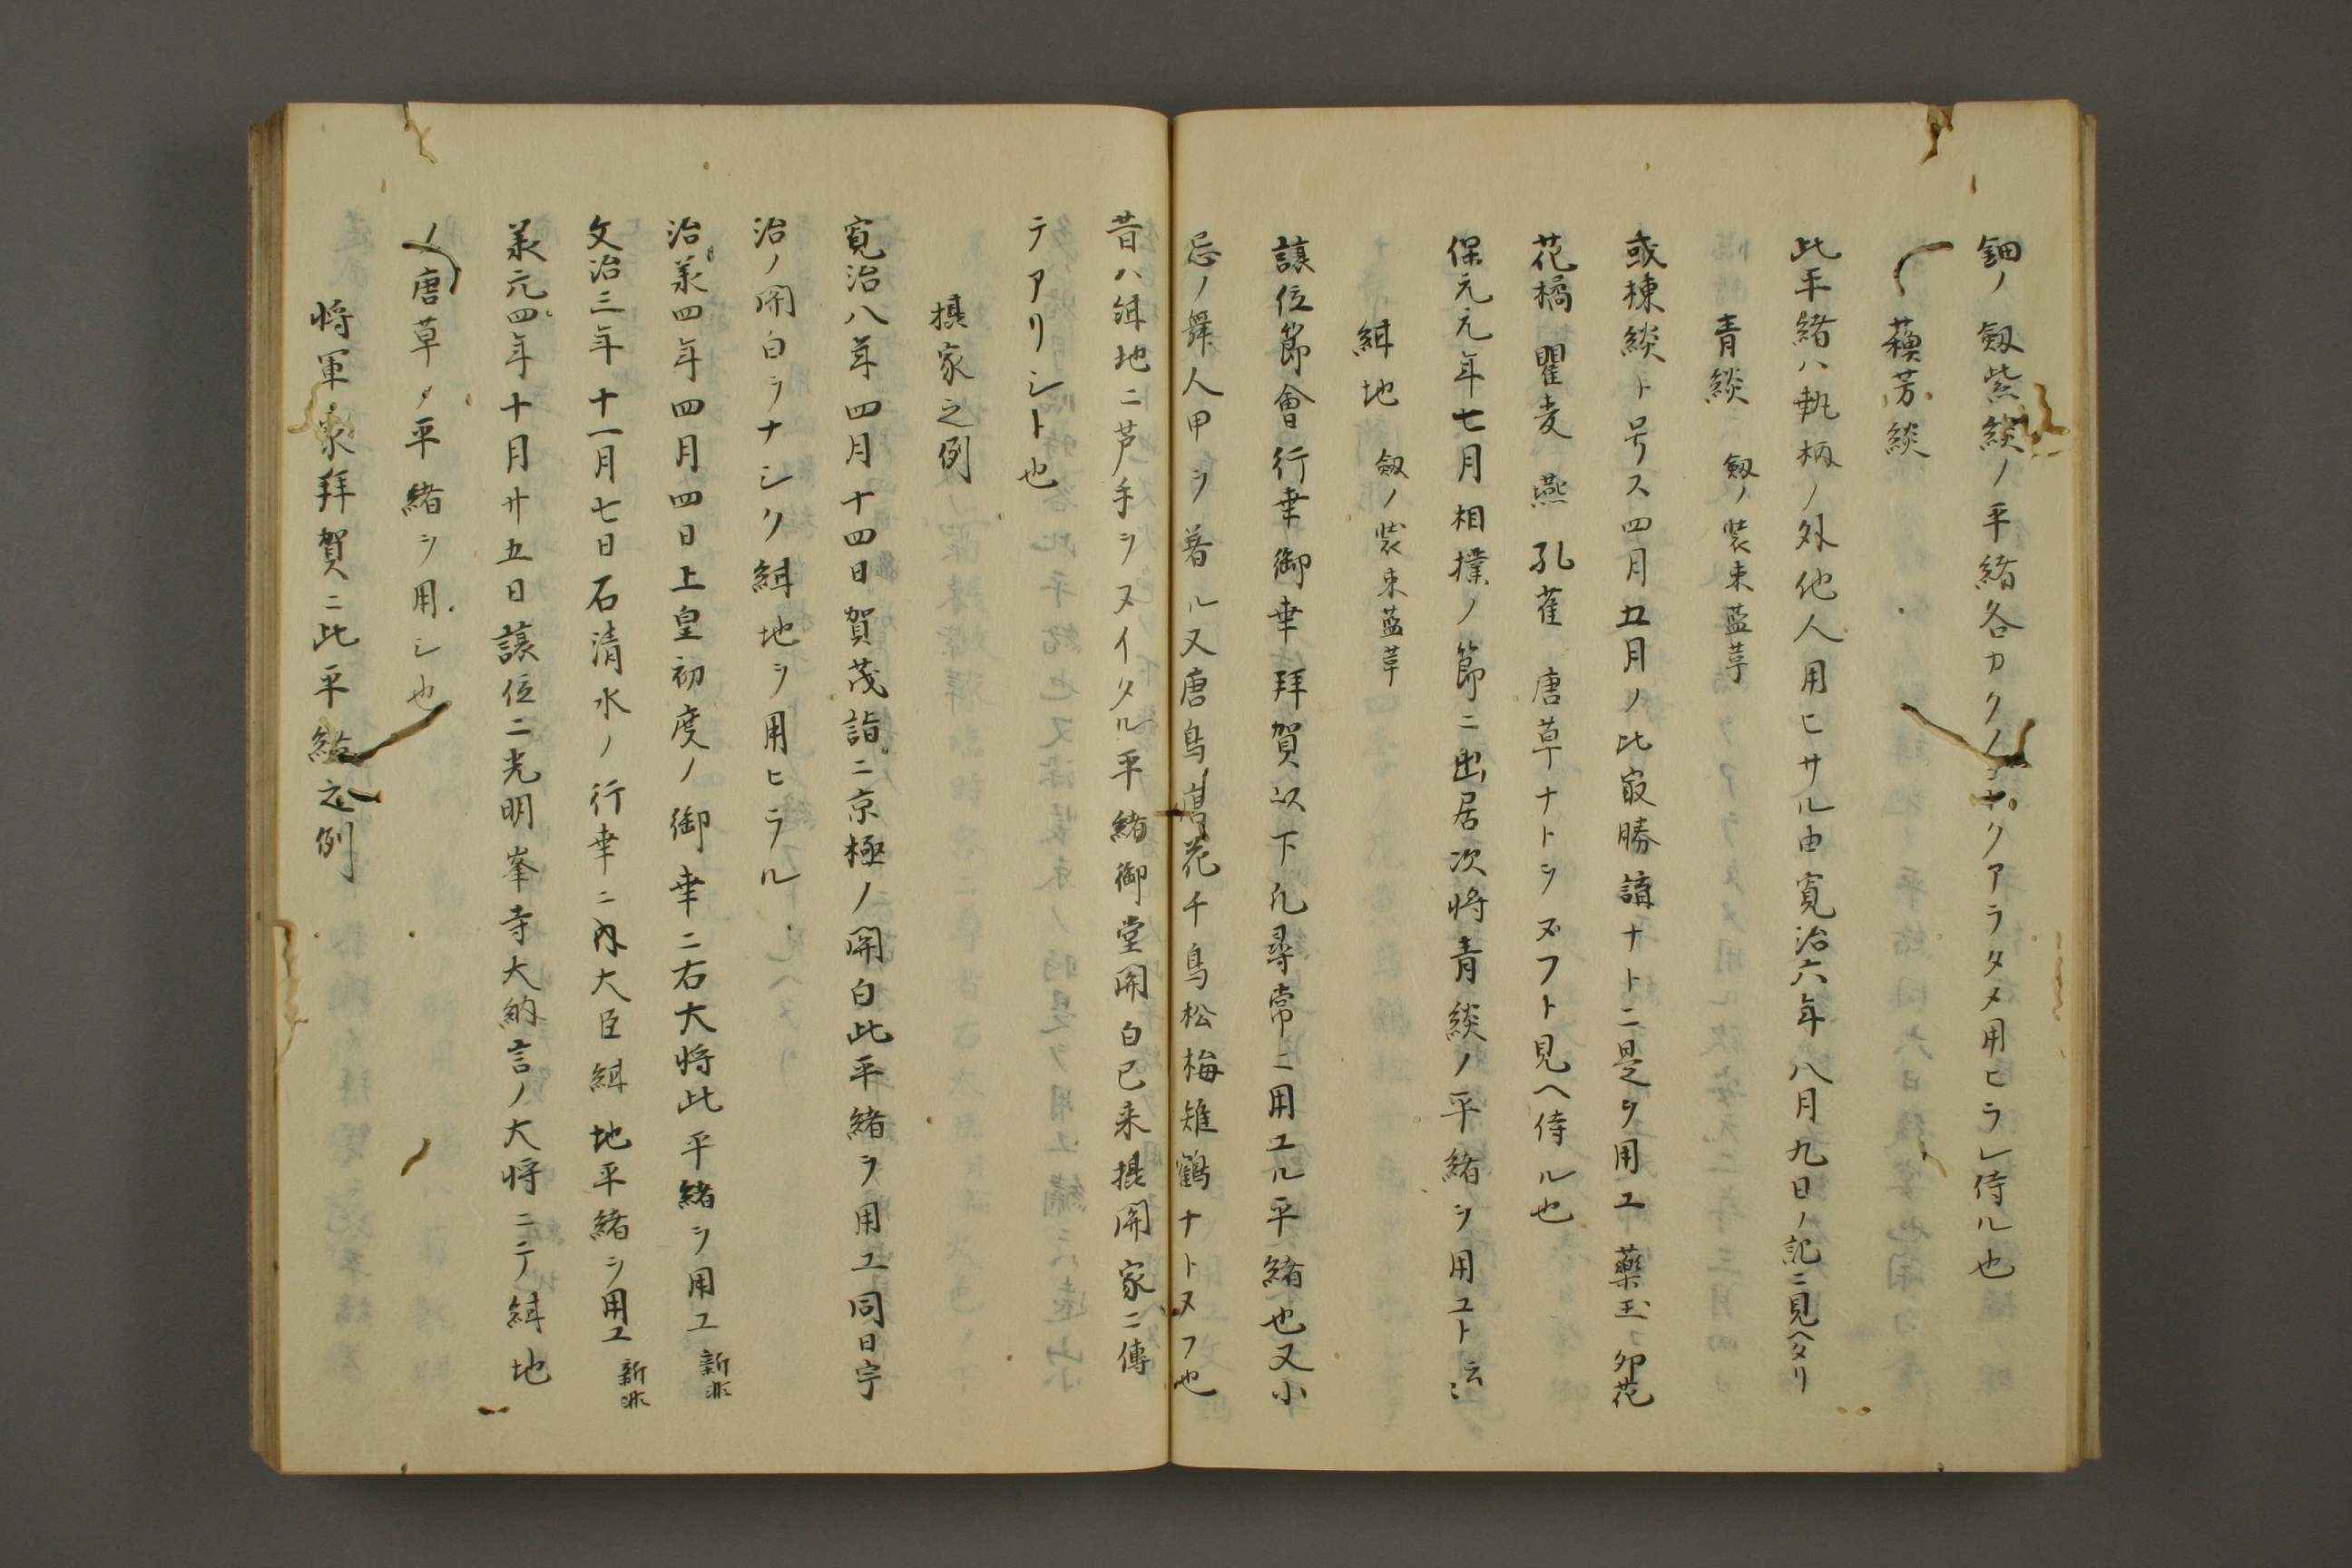 鈿ノ劔紫緂ノ平緒各カクノコトクアラタメ用ヒラレ侍ル也
蘓芳緂
此平緒ハ執柄ノ外他人用ヒサル由寛治六年八月九日ノ記ニ見ヘタリ
青緂 劔ノ装束藍革
或楝緂ト号ス四月五月ノ比最勝講ナトニ是ヲ用ユ 藥玉 卯花
花橘 瞿麦 燕 孔雀 唐草ナトヲヌフト見ヘ侍ル也
保元元年七月相撲ノ節ニ出居次将青緂ノ平緒ヲ用ユト云〻
緋地 劔ノ装束藍革
譲位節會行幸御幸拜賀以下凡尋常ニ用ユル平緒也又小
忌ノ舞人甲ヲ着ル又唐鳥唐花千鳥松梅雉鶴ナトヌフ也
昔ハ緋地ニ芦手ヲヌイタル平緒御堂関白已来摂関家ニ傳
テアリシト也
摂家之例
寛治八年四月十四日賀茂詣ニ京極ノ関白此平緒ヲ用ユ同日宇
治ノ関白ヲナシク緋地ヲ用ヒラル
治承四年四月四日上皇初度ノ御幸ニ右大将此平緒ヲ用ユ
文治三年十一月七日石清水ノ行幸ニ内大臣緋地平緒ヲ用ユ
承元四年十月廿五日譲位ニ光明峯寺大納言ノ大将ニテ緋地
ノ唐草ノ平緒ヲ用シ也
将軍家拜賀ニ此平緒之例